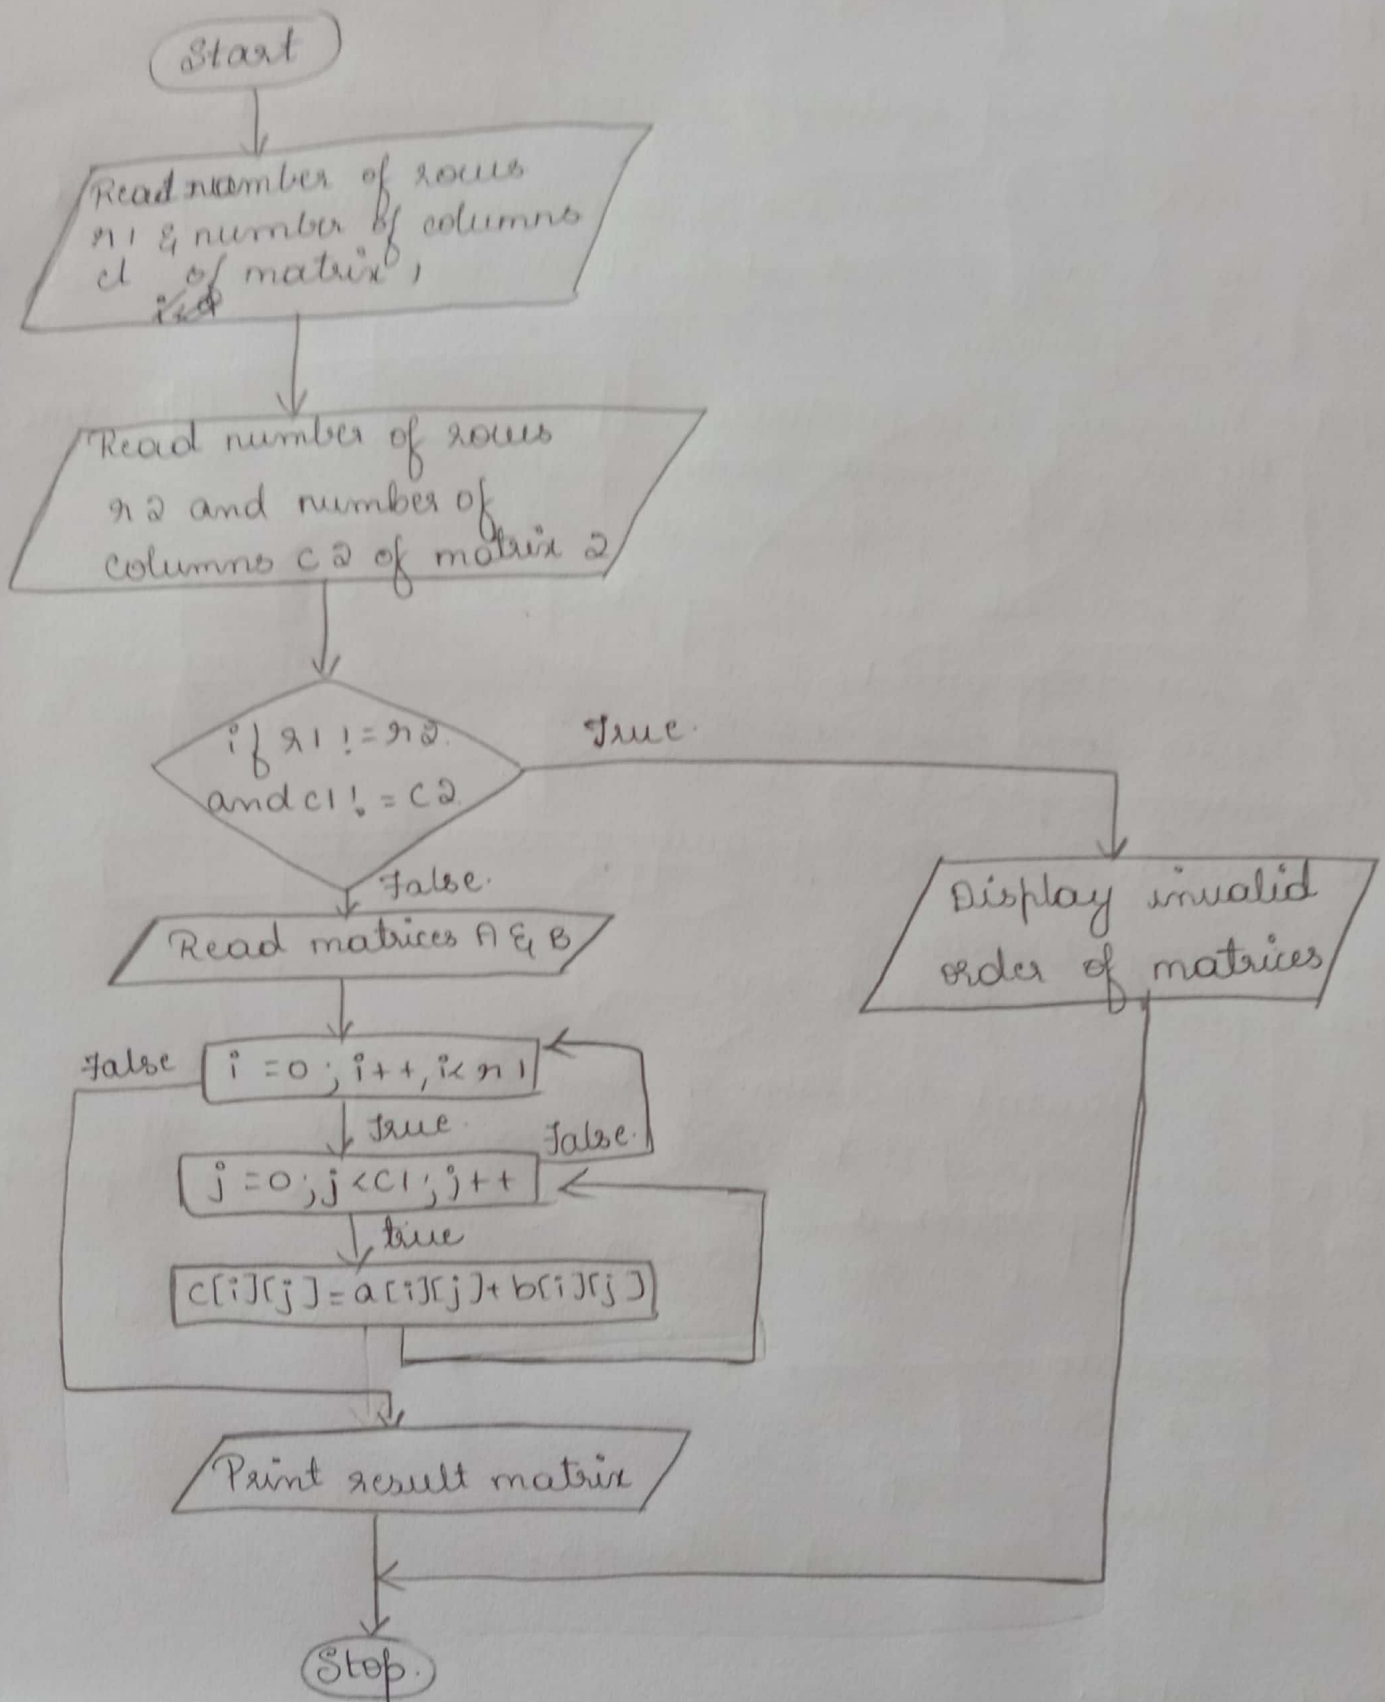 Start
Read number of rows
r1 & number of columns
c1 of matrix 1
Read number of rows
r2 and number of
columns c2 of matrix 2
if r1 != r2
and c1 != c2
True.
False.
Read matrices A & B
Display invalid
order of matrices
False
i = 0; i++, i< r1
True.
False.
j = 0; j < c1; j++
true
c[i][j] = a[i][j] + b[i][j]
Print result matrix
Stop.